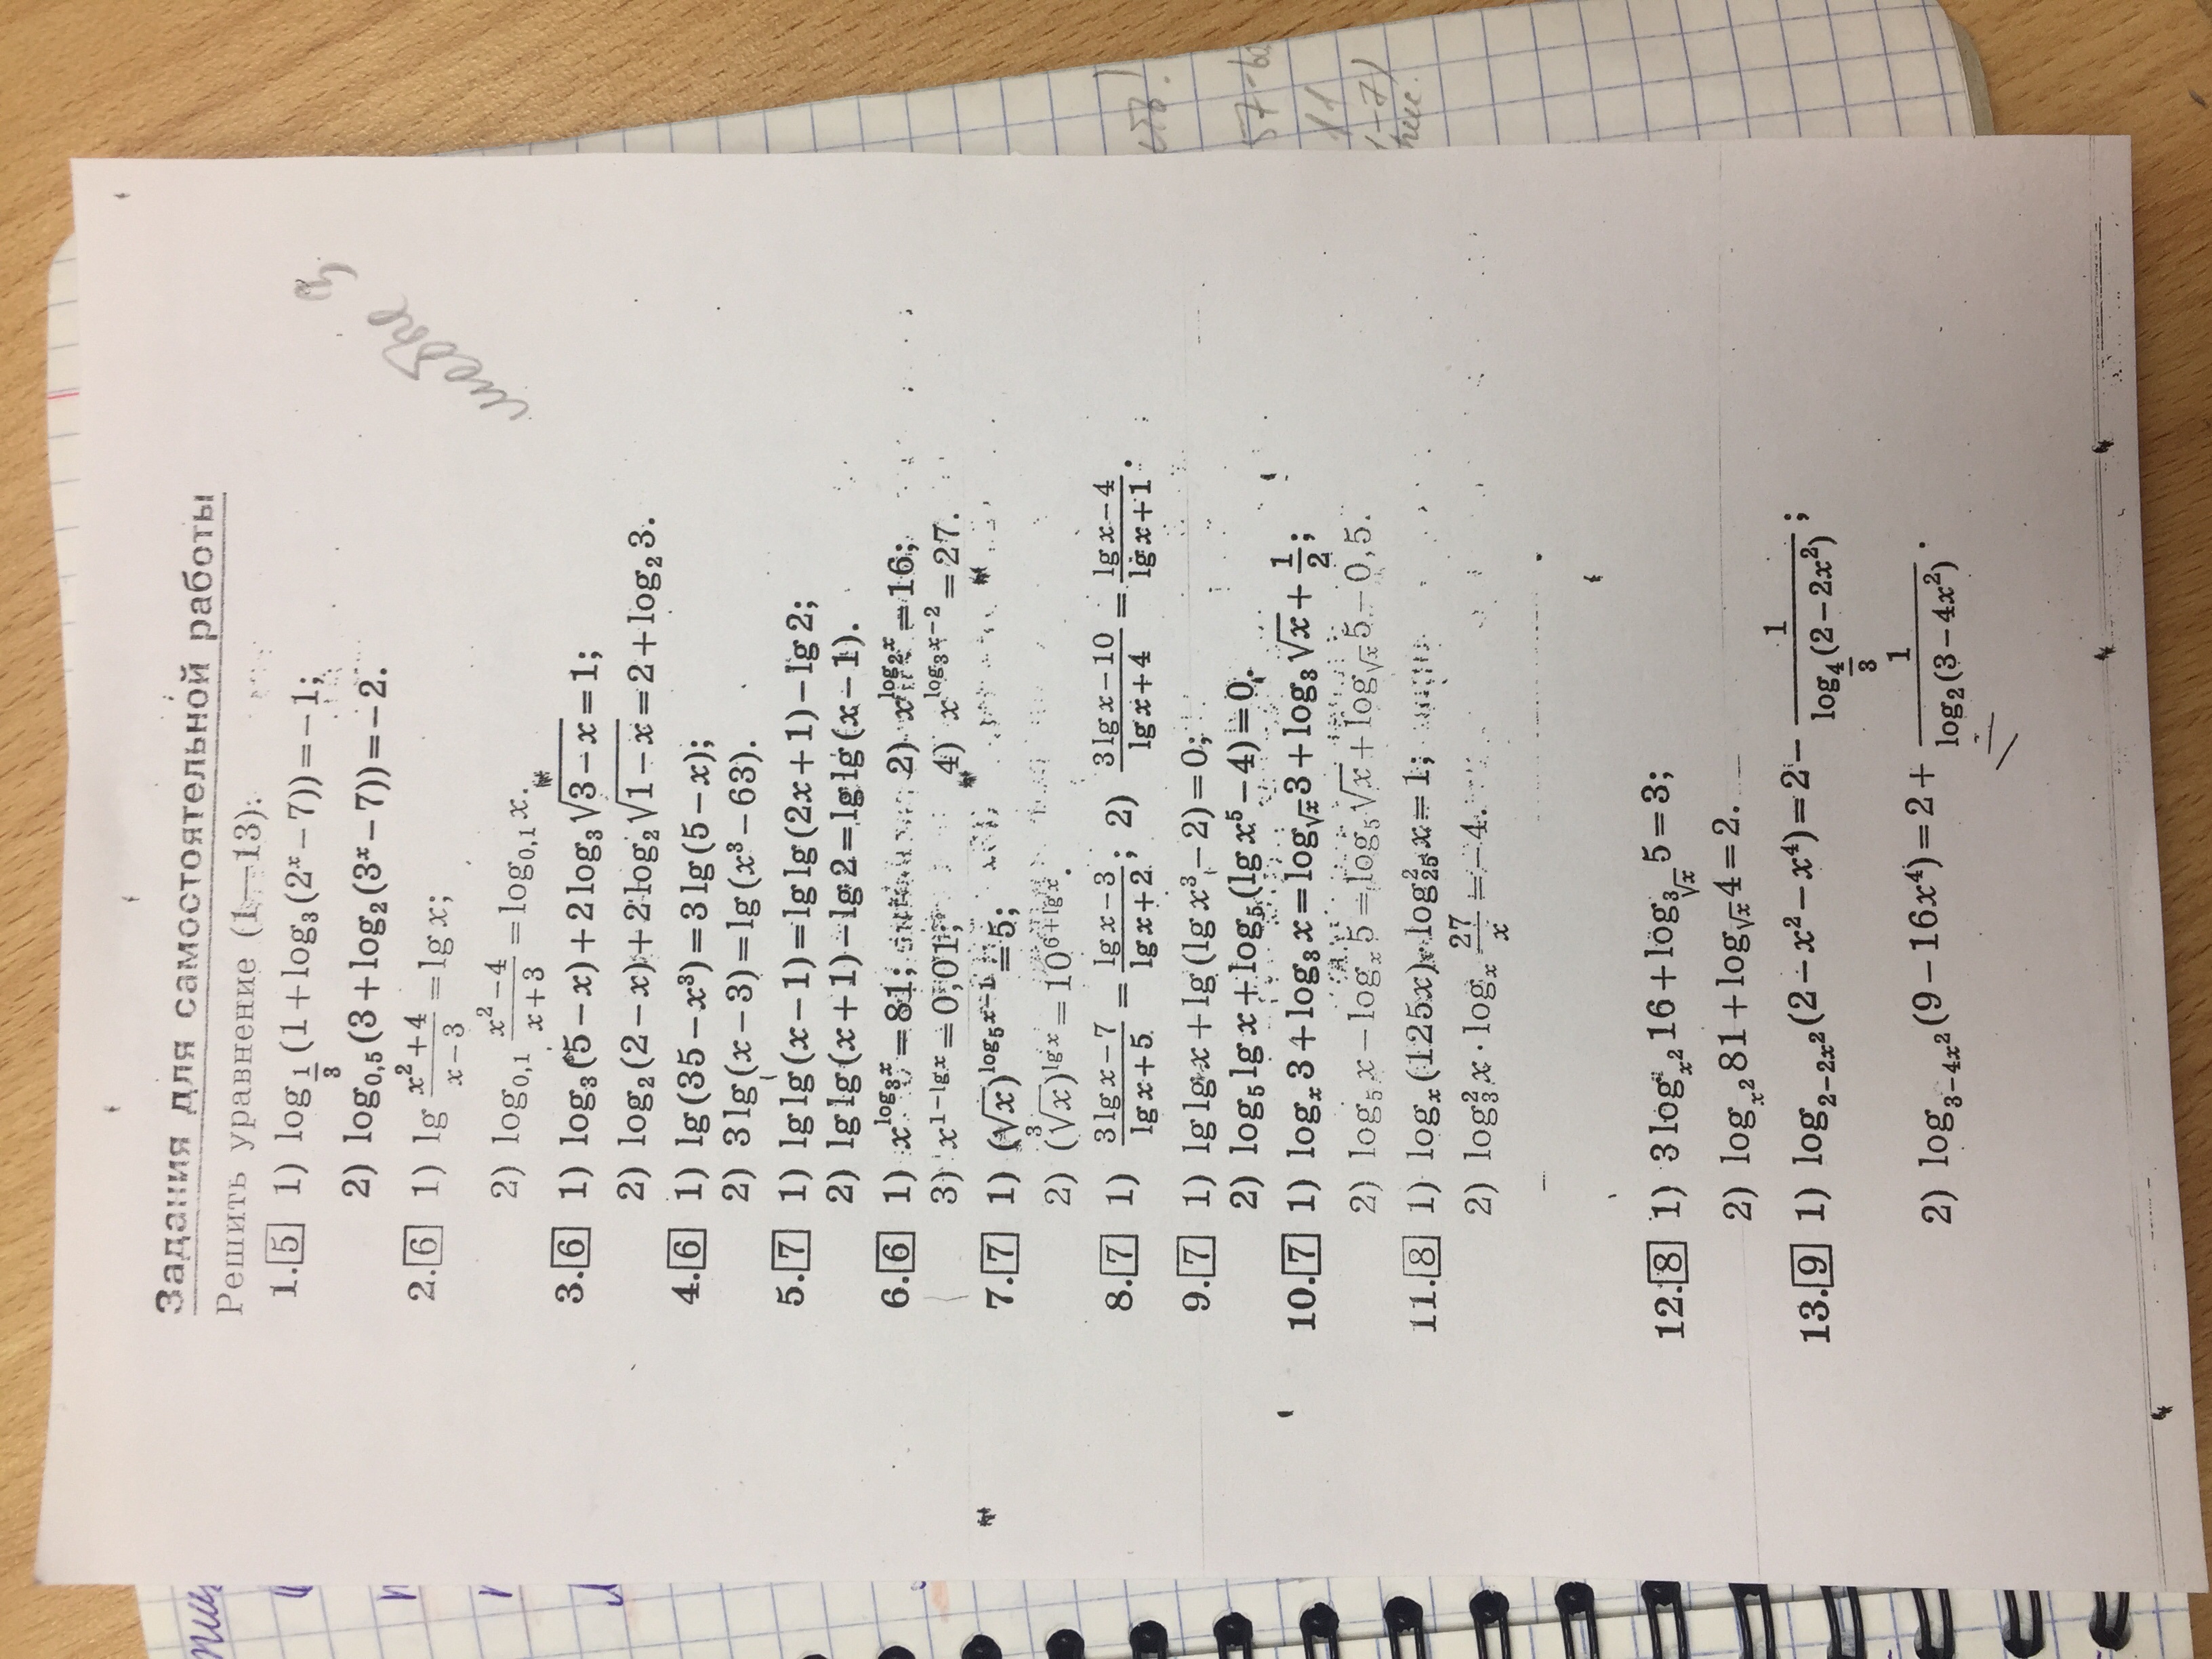 Задания для самостоятельной работы
Решить уравнение (1—13):
1. 5 1) log_{1/3}(1+log_3(2^x−7))=−1;
2) log_{0,5}(3+log_2(3^x−7))=−2.
2. 6 1) lg (x^2+4)/(x−3)=lg x;
2) log_{0,1} (x^2−4)/(x+3)=log_{0,1}x.
3. 6 1) log_3(5−x)+2log_3√(3−x)=1;
2) log_2(2−x)+2log_2√(1−x)=2+log_2 3.
4. 6 1) lg(35−x^3)=3lg(5−x);
2) 3lg(x−3)=lg(x^3−63).
5. 7 1) lg lg(x−1)=lg lg(2x+1)−lg2;
2) lg lg(x+1)−lg2=lg lg(x−1).
6. 6 1) x^{log_3 x}=81; 2) x^{log_2 x}=16;
3) x^{1−lg x}=0,01; 4) x^{log_3 x−2}=27.
7. 7 1) (√x)^{log_5 x−1}=5;
2) (∛x)^{lg x}=10^{6+lg x}.
8. 7 1) (3lg x−7)/(lg x+5)=(lg x−3)/(lg x+2); 2) (3lg x−10)/(lg x+4)=(lg x−4)/(lg x+1).
9. 7 1) lg lg x+lg(lg x^3−2)=0;
2) log_5 lg x+log_5(lg x^5−4)=0.
10. 7 1) log_x 3+log_3 x=log_{√x}3+log_3√x+1/2;
2) log_5 x−log_x 5=log_5√x+log_{√x}5−0,5.
11. 8 1) log_x(125x)·log_{25}^2 x=1;
2) log_3^2 x·log_x 27/x=−4.
12. 8 1) 3log_{x^2}16+log_{∛x}5=3;
2) log_{x^2}81+log_{√x}4=2.
13. 9 1) log_{2−2x^2}(2−x^2−x^4)=2−1/(log_{4/3}(2−2x^2));
2) log_{3−4x^2}(9−16x^4)=2+1/(log_2(3−4x^2)).